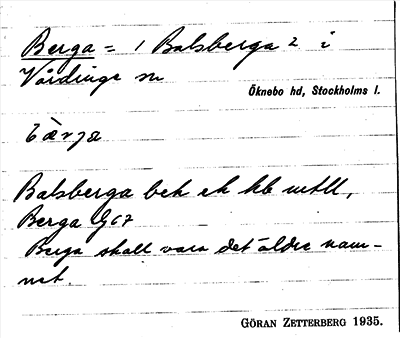 Berga = 1 Balsberga 2 i
Vårdinge sn
Öknebo hd, Stockholms l.
bæ̀rja
Balsberga bek ek hb mtll,
Berga Gk7
Berga skall vara det äldre nam-
net
GÖRAN ZETTERBERG 1935.